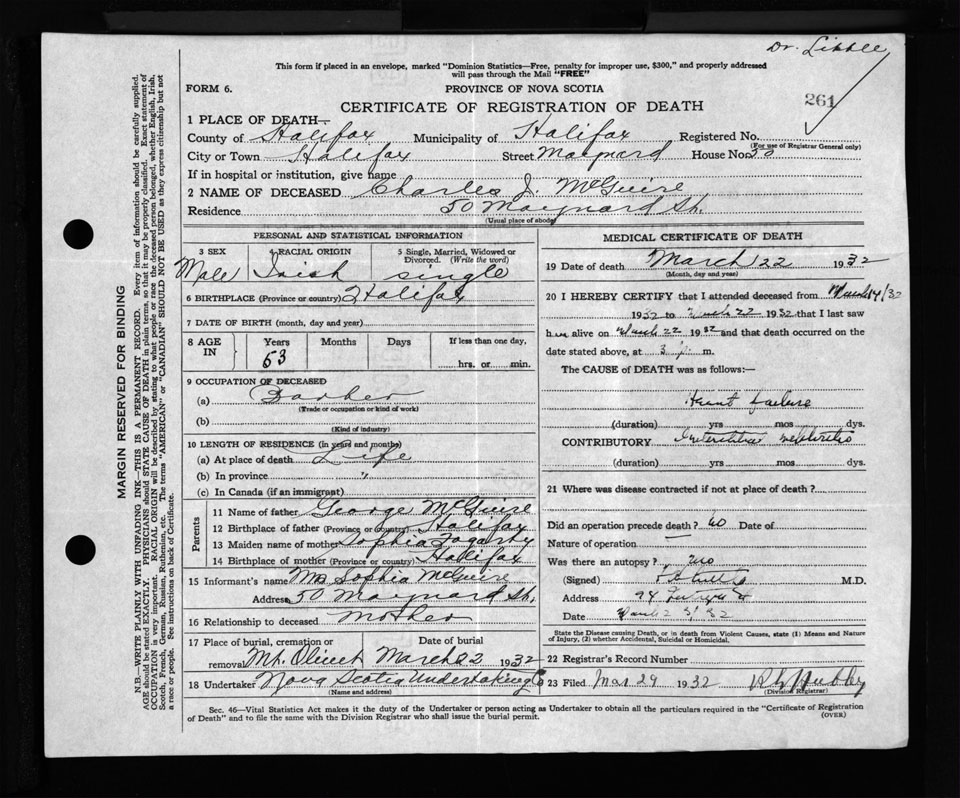 Dr. Little
This form if placed in an envelope, marked "Dominion Statistics—Free, penalty for improper use, $300," and properly addressed
will pass through the Mail "FREE"
FORM 6. PROVINCE OF NOVA SCOTIA
CERTIFICATE OF REGISTRATION OF DEATH
261
1 PLACE OF DEATH—
County of Halifax Municipality of Halifax Registered No.
(For use of Registrar General only)
City or Town Halifax Street Maynard House No. 50
If in hospital or institution, give name
2 NAME OF DECEASED Charles J. McGuire
Residence 50 Maynard St.
(Usual place of abode)
PERSONAL AND STATISTICAL INFORMATION
3 SEX 4 RACIAL ORIGIN 5 Single, Married, Widowed or
Divorced. (Write the word)
Male Irish single
6 BIRTHPLACE (Province or country) Halifax
7 DATE OF BIRTH (month, day and year)
8 AGE IN Years Months Days If less than one day,
53 hrs. or min.
9 OCCUPATION OF DECEASED
(a) Barber
(Trade or occupation or kind of work)
(b)
(Kind of industry)
10 LENGTH OF RESIDENCE (in years and months)
(a) At place of death Life
(b) In province "
(c) In Canada (if an immigrant)
Parents
11 Name of father George McGuire
12 Birthplace of father (Province or country) Halifax
13 Maiden name of mother Sophia Fogarty
14 Birthplace of mother (Province or country) Halifax
15 Informant's name Mrs Sophia McGuire
Address 50 Maynard St.
16 Relationship to deceased mother
17 Place of burial, cremation or Date of burial
removal Mt. Olivet March 1932
18 Undertaker Nova Scotia Undertaking Co
(Name and address)
MEDICAL CERTIFICATE OF DEATH
19 Date of death March 22 1932
(Month, day and year)
20 I HEREBY CERTIFY that I attended deceased from March 14/32
1932 to March 22 1932 that I last saw
him alive on March 22 1932 and that death occurred on the
date stated above, at 3 p. m.
The CAUSE of DEATH was as follows:—
Heart failure
(duration) yrs mos dys.
CONTRIBUTORY Interstitial nephritis
(duration) yrs mos dys.
21 Where was disease contracted if not at place of death?
Did an operation precede death? no Date of
Nature of operation
Was there an autopsy? no
(Signed) M.D.
Address 94
Date
State the Disease causing Death, or in death from Violent Causes, state (1) Means and Nature
of Injury, (2) whether Accidental, Suicidal or Homicidal.
22 Registrar's Record Number
23 Filed Mar 29 1932 Hubley
(Division Registrar)
Sec. 46—Vital Statistics Act makes it the duty of the Undertaker or person acting as Undertaker to obtain all the particulars required in the "Certificate of Registration
of Death" and to file the same with the Division Registrar who shall issue the burial permit. (OVER)
MARGIN RESERVED FOR BINDING
N.B.—WRITE PLAINLY WITH UNFADING INK—THIS IS A PERMANENT RECORD. Every item of information should be carefully supplied.
AGE should be stated EXACTLY. PHYSICIANS should STATE CAUSE OF DEATH in plain terms, so that it may be properly classified. Exact statement of
OCCUPATION is very important. RACIAL ORIGIN will be described by stating to what people or race the deceased person belonged, whether English, Irish,
Scotch, French, German, Russian, Ruthenian, etc. The terms "AMERICAN" or "CANADIAN" SHOULD NOT BE USED as they express citizenship but not
a race or people. See instructions on back of Certificate.